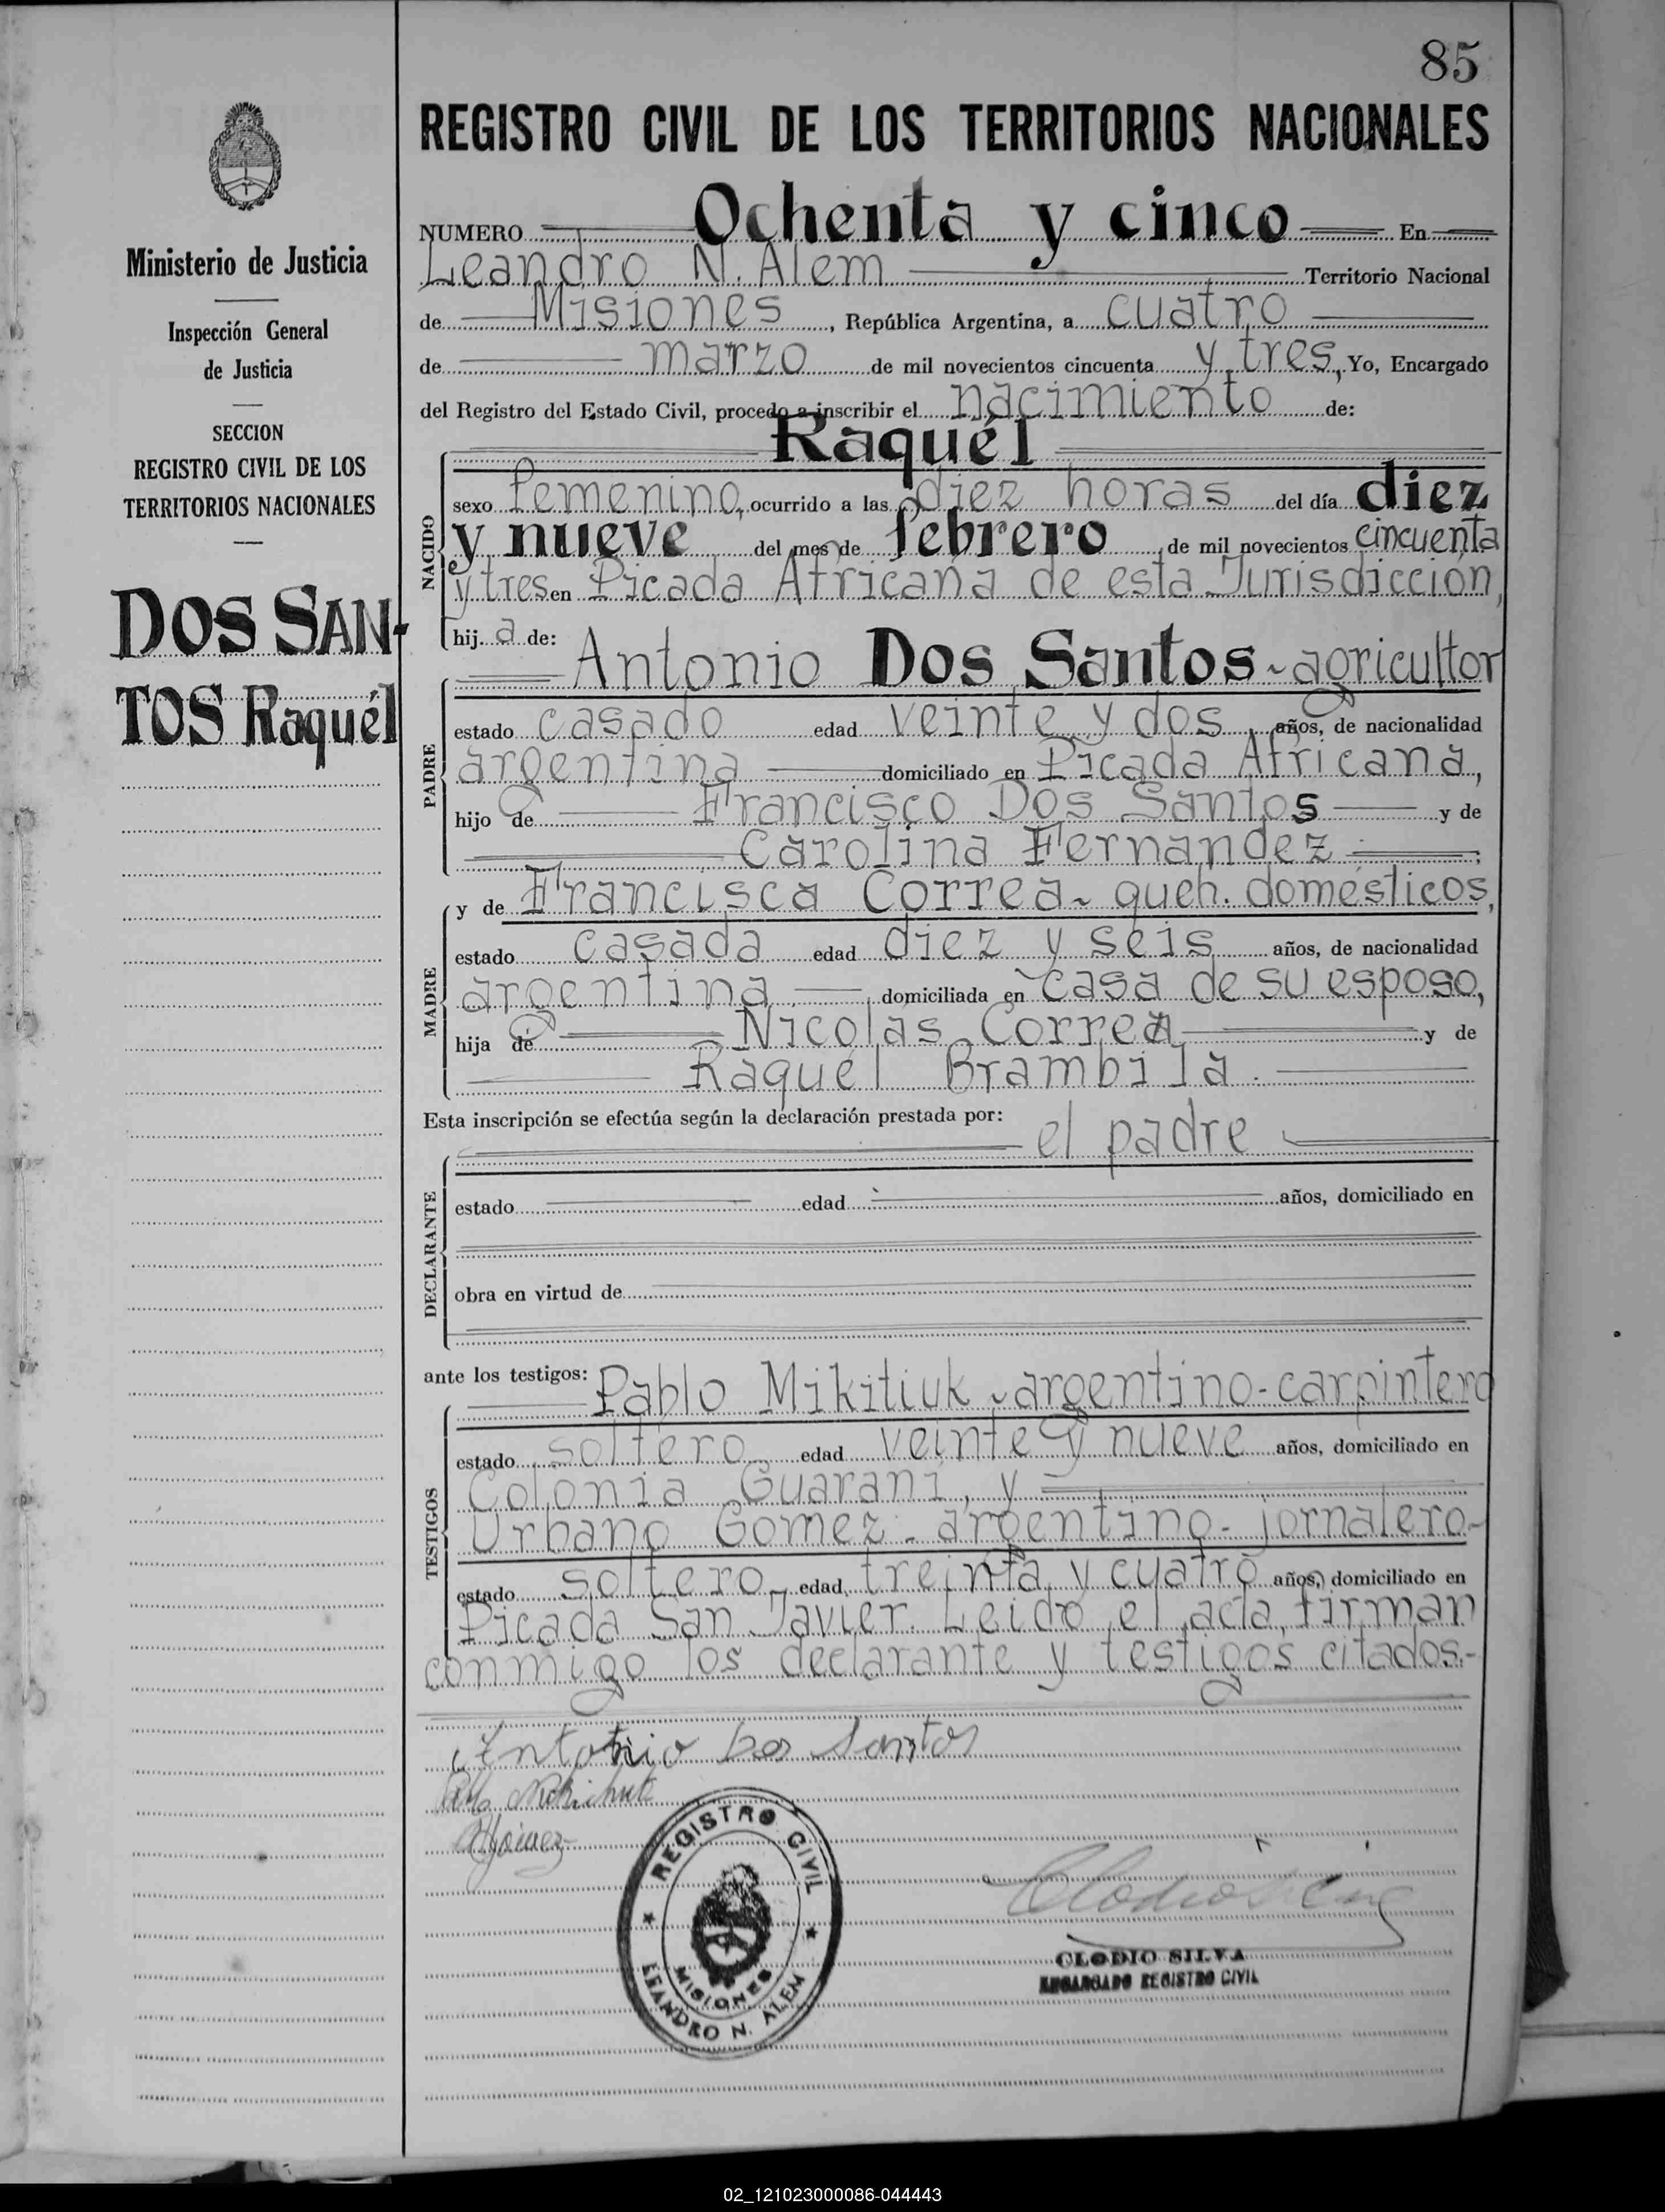 85
REGISTRO CIVIL DE LOS TERRITORIOS NACIONALES
Ministerio de Justicia
Inspección General
de Justicia
SECCION
REGISTRO CIVIL DE LOS
TERRITORIOS NACIONALES
DOS SAN-
TOS Raquél
NUMERO Ochenta y cinco En
Leandro N. Alem Territorio Nacional
de Misiones, República Argentina, a cuatro
de marzo de mil novecientos cincuenta y tres, Yo, Encargado
del Registro del Estado Civil, procedo a inscribir el nacimiento de:
Raquél
NACIDO
sexo femenino, ocurrido a las diez horas del día diez
y nueve del mes de febrero, de mil novecientos cincuenta
y tres en Picada Africana de esta Jurisdicción,
hij a de:
Antonio Dos Santos - agricultor
PADRE
estado casado edad veinte y dos años, de nacionalidad
argentina domiciliado en Picada Africana,
hijo de Francisco Dos Santos y de
Carolina Fernandez;
MADRE
y de Francisca Correa - queh. domésticos,
estado casada edad diez y seis años, de nacionalidad
argentina, domiciliada en casa de su esposo,
hija de Nicolás Correa y de
Raquél Brambila.
Esta inscripción se efectúa según la declaración prestada por:
el padre
DECLARANTE
estado edad años, domiciliado en
obra en virtud de
ante los testigos:
Pablo Mikitiuk - argentino - carpintero
TESTIGOS
estado soltero edad veinte y nueve años, domiciliado en
Colonia Guaraní, y
Urbano Gomez - argentino - jornalero -
estado soltero, edad treinta y cuatro años, domiciliado en
Picada San Javier. Leido el acta, firman
conmigo los declarante y testigos citados.-
Antonio Dos Santos
REGISTRO CIVIL
MISIONES
LEANDRO N. ALEM
CLODIO SILVA
ENCARGADO REGISTRO CIVIL
02_121023000086-044443